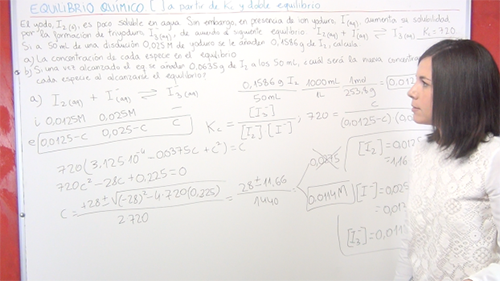 EQUILIBRIO QUÍMICO ( a partir de Kc y doble equilibrio
El yodo, I2(s), es poco soluble en agua. Sin embargo, en presencia de ion yoduro, I-(aq), aumenta su solubilidad
por la formación de triyoduro, I3-(aq), de acuerdo al siguiente equilibrio I2(aq) + I-(aq) ⇌ I3-(aq) Kc=720
Si a 50 mL de una disolución 0,025 M de yoduro se le añaden 0,1586 g de I2, calcula
a) La concentración de cada especie en el equilibrio
b) Si una vez alcanzado el eq se añaden 0,0635 g de I2 a los 50 mL, ¿cuál será la nueva concentra
cada especie al alcanzarse el equilibrio?
a) I2(aq) + I-(aq) ⇌ I3-(aq)
0,1586 g I2 / 50 mL · 1000 mL / 1L · 1 mol / 253,8 g = 0,012
i. 0,0125M 0,025M –
e 0,0125-C 0,025-C C
Kc = [I3-] / [I2] [I-] ; 720 = C / (0,0125-C) (0,0
720 (3,125·10⁻⁴ - 0,0375C + C²) = C
720C² - 28C + 0,225 = 0
C = +28 ± √(-28)² - 4·720(0,225) / 2·720 = 28 ± 11,66 / 1440
0,0275
0,0114M
[I2] = 0,01
= 1,16
[I-] = 0,025
= 0,01
[I3-] = 0,011